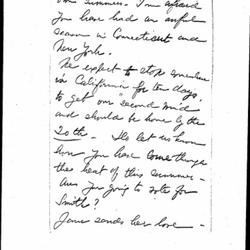 the summer. I'm afraid
you have had an awful
season in Connecticut and
New York.
We expect to stop somewhere
in California for ten days,
to get our second wind
and should be home by the
20th. Do let us know
how you have come through
the heat of this summer -
Are you going to vote for
Smith?
Jane sends her love -